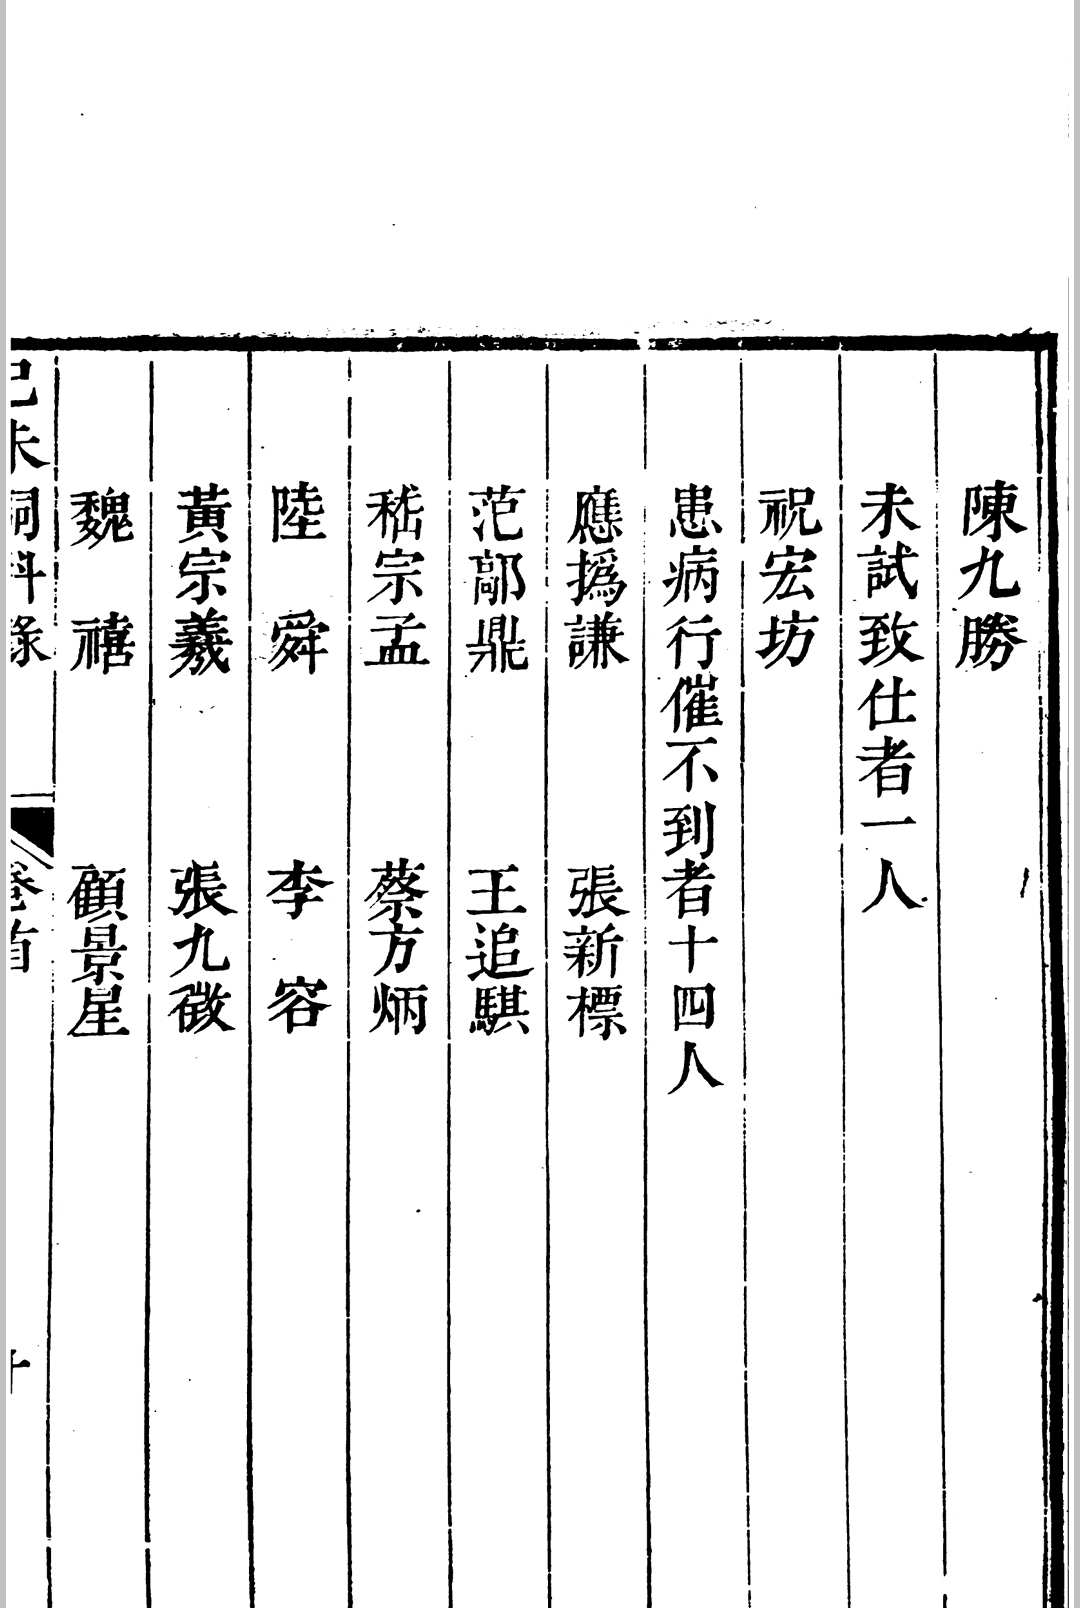 陳九勝
未試致仕者一人
祝宏坊
患病行催不到者十四人
應撝謙　張新標
范鄗鼎　王追騏
嵇宗孟　蔡方炳
陸舜　李容
黃宗羲　張九徵
魏禧　顧景星
己未詞科錄　卷首　十